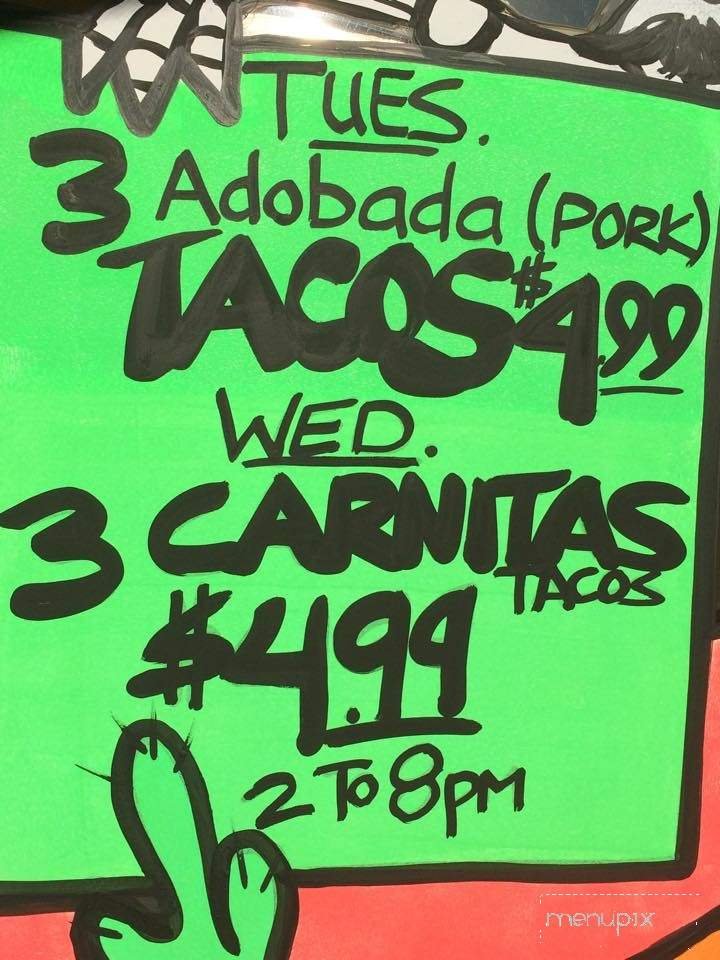 TUES.
3 Adobada (PORK)
TACOS $4.99
WED.
3 CARNITAS
TACOS
$4.99
2 To 8pm
menupix